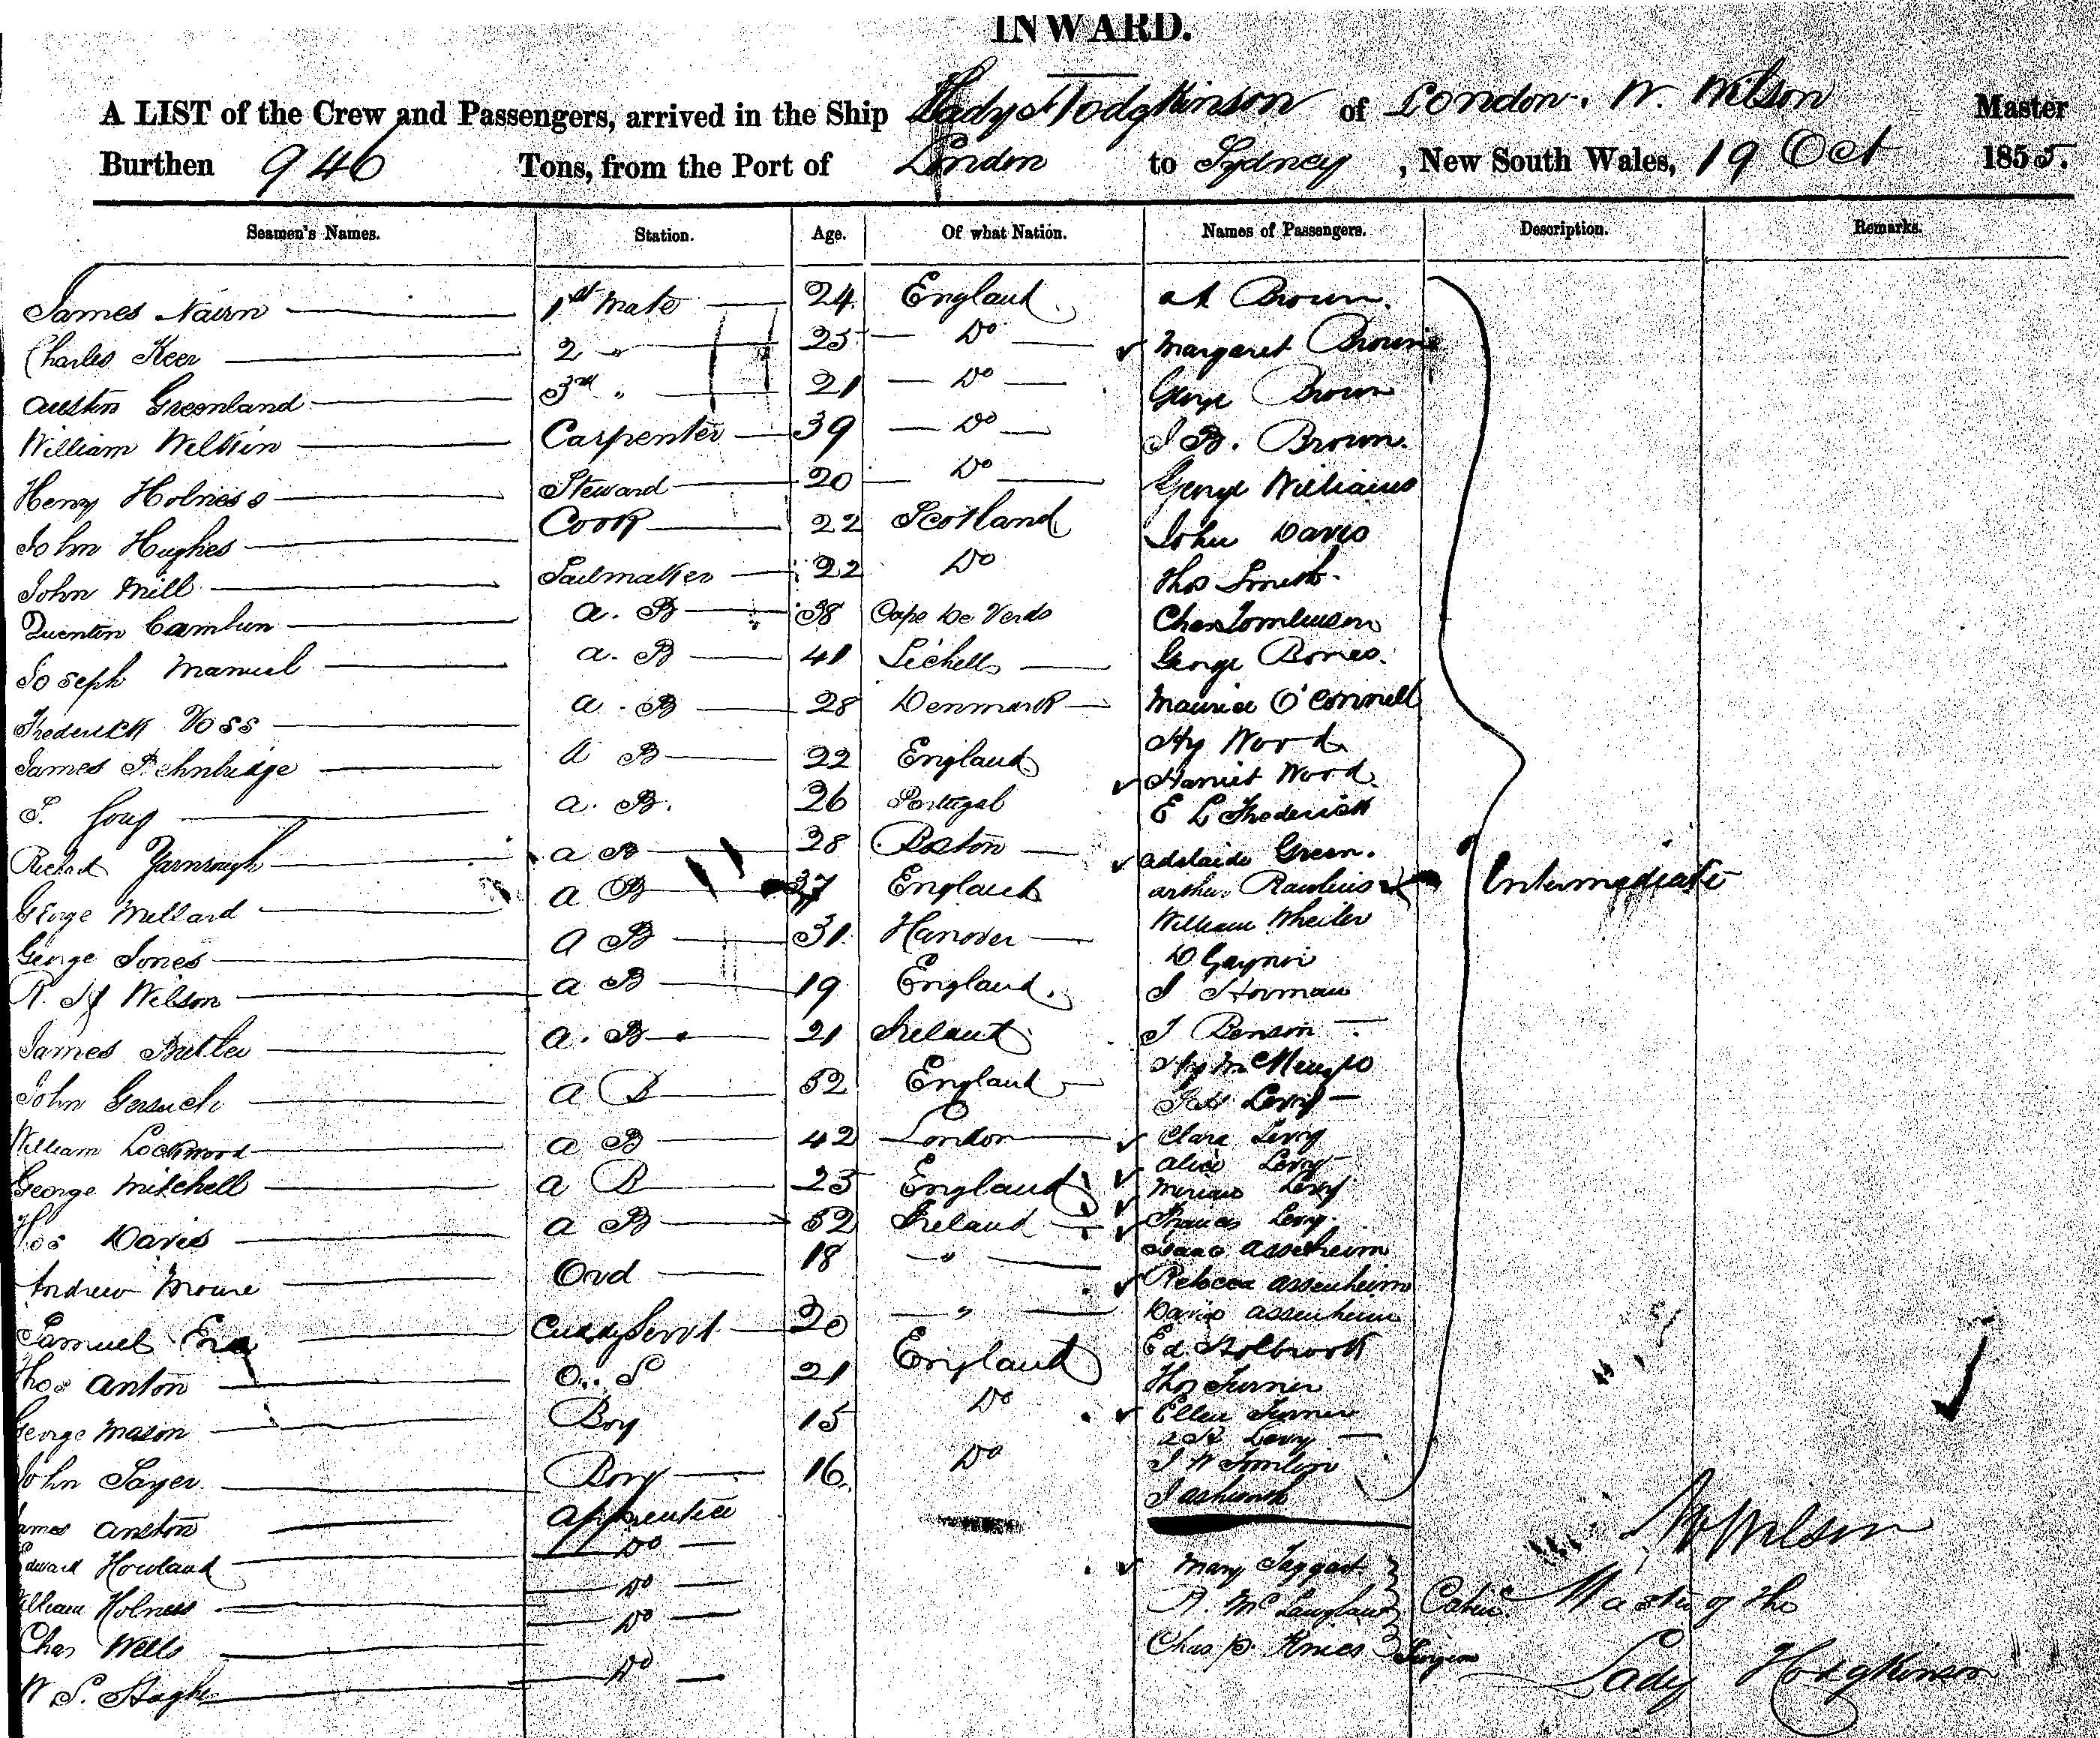 INWARD.
A LIST of the Crew and Passengers, arrived in the Ship Lady Hodgkinson of London. W. Wilson Master
Burthen 946 Tons, from the Port of London to Sydney, New South Wales, 19 Oct 1855.
Seamen's Names. Station. Age. Of what Nation. Names of Passengers. Description. Remarks.
James Nairn 1st Mate 24 England A Brown.
Charles Keer 2 " 25 Do Margaret Brown
Austin Greenland 3rd " 21 Do George Brown
William Welkin Carpenter 39 Do J B. Brown.
Henry Holness Steward 20 Do George Williams
John Hughes Cook 22 Scotland John Davis
John Mill Sailmaker 22 Do Thos Smith.
Quenton a. B 38 Cape De Verds Chas Tomlinson
Joseph Manuel a. B 41 Sichells George
Frederick Voss a. B 28 Denmark Maurice O'Connell
James A B 22 England Hy Wood
a. B. 26 Portugal Harriet Wood
E L Frederick
Richard a B 28 Boston Adelaide Green.
George Mellard a B 37 England Arthur Rawlins Intermediate
George Jones A B 31 Hanover William Wheiler
D
R. H Wilson a B 19 England. J
James Butler a. B 21 Ireland J Benson
John a B 52 England
Levy
William Lockwood a B 42 London Clara Levy
Alice Levy
George Mitchell a B 25 England Miriam Levy
Thos Davis a B 52 Ireland Frances Levy
Isaac Assenheim
Andrew Ord 18 " Rebecca Assenheim
Samuel Cuddy Servt 20 " David Assenheim
Ed Holbrook
Thos Anton O. S 21 England Thos Turner
George Mason Boy 15 Do Ellen Turner
Levy
John Sayer Boy 16 Do J W
J Ashworth
James Anston Apprentice
W Wilson
Edward Howland Do Mary Taggart
William Holness Do R. Mc Cabin Master of the
Chas Wells Do Chas Surgeon
W S. Do Lady Hodgkinson